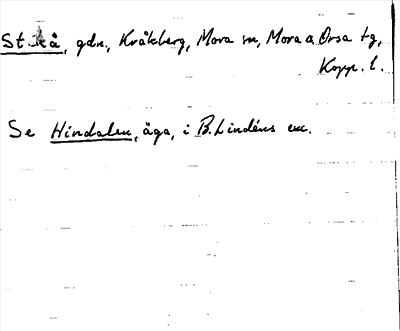 gdn, Kråkberg, Mora sn, Mora o Orsa tg,
Kopp. l.
Se Hindalen, äga, i B. Lindéns ex.